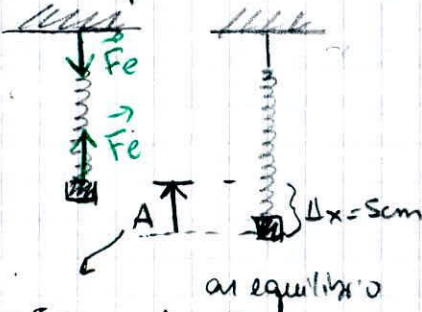 Fe
Fe
A
Δx = 5cm
equilibrio